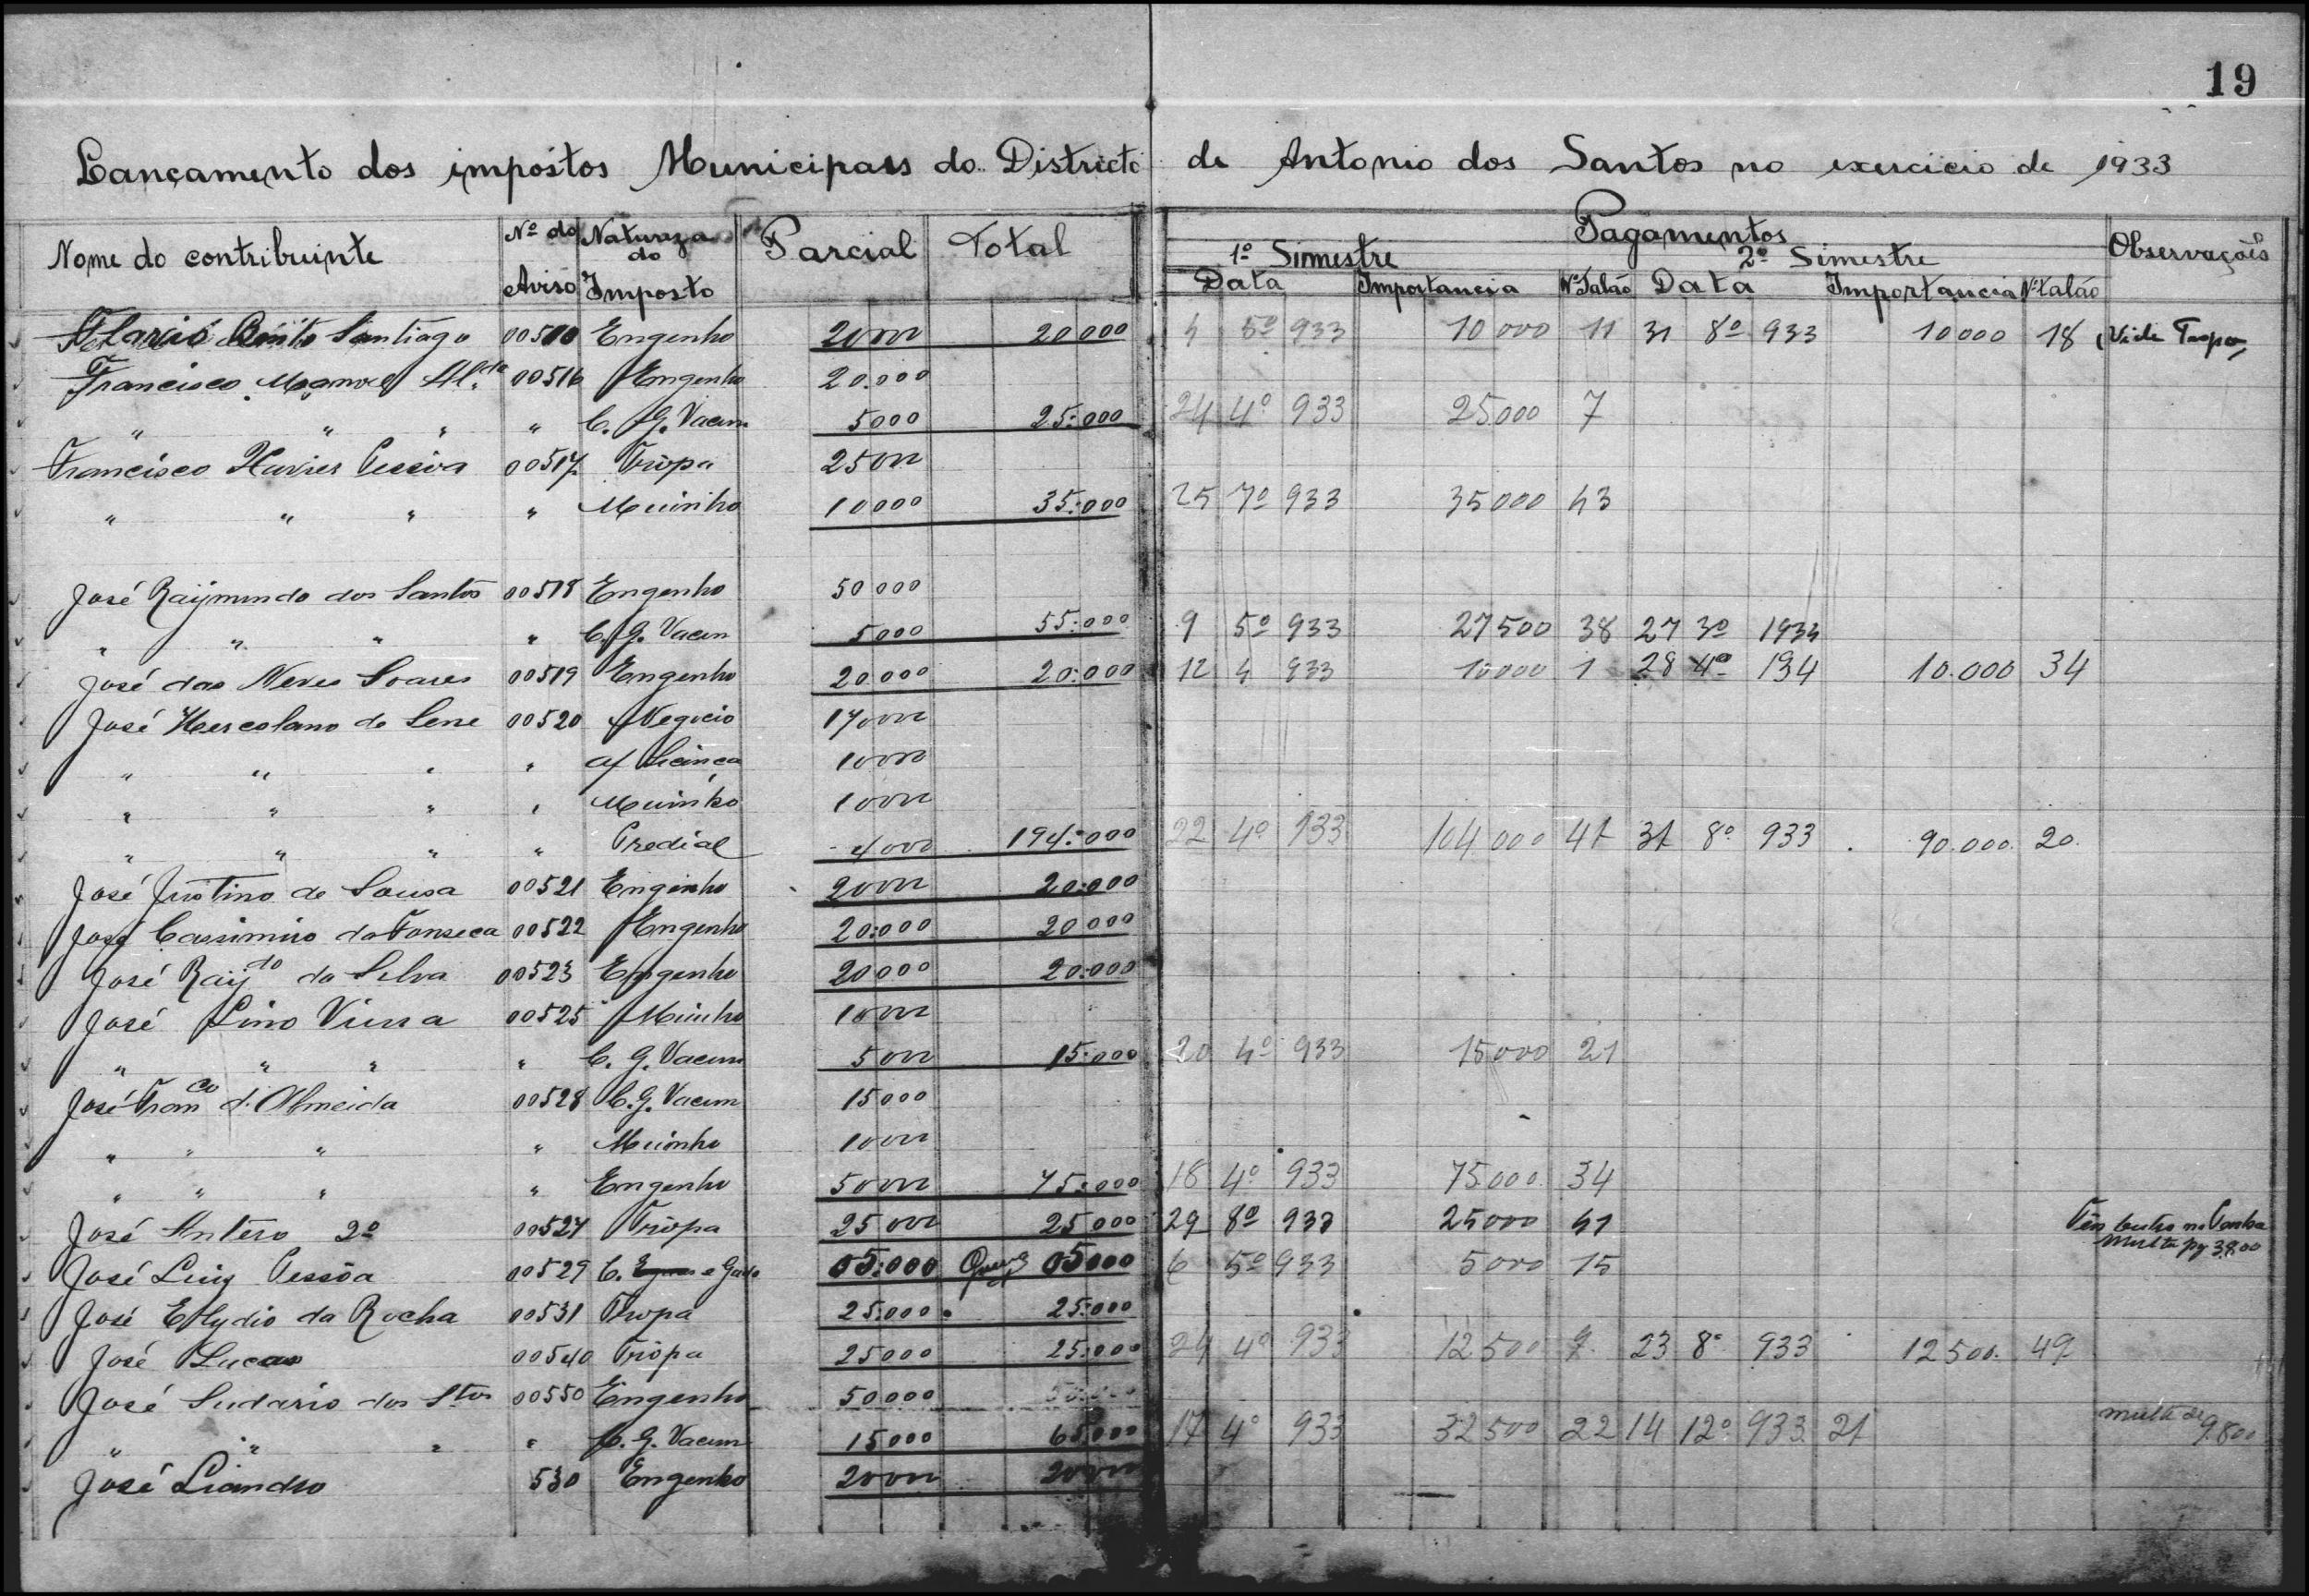 19
Lançamento dos impostos Municipaes do Districto de Antonio dos Santos no exercicio de 1933
Nome do contribuinte Nº do Aviso Natureza do Imposto Parcial Total Pagamentos Observações
1º Simestre 2º Simestre
Data Importancia Nº Talão Data Importancia Nº talão
Santiago 00510 Engenho 20000 20000 4 5º 933 10000 11 31 8º 933 10000 18 (Vide
Francisco Manoel Al.da 00516 Engenho 20.000
" " " " C. G. Vacum 5000 25:000 24 4º 933 25000 7
Francisco Xavier Pessôa 00517 Tropa 25000
" " " " Muinho 10000 35:000 25 7º 933 35000 43
José Raymundo dos Santos 00518 Engenho 50000
" " " " C. G. Vacum 5000 55:000 9 5º 933 27500 38 27 3º 1934
José das Neves Soares 00519 Engenho 20.000 20:000 12 4 933 10000 1 28 4º 134 10.000 34
José Hercolano de Sene 00520 Negocio 170000
" " " " a/ Licinça 10000
" " " " Muinho 10000
" " " " Predial 4000 194:000 22 4º 933 104000 41 31 8º 933 90.000 20
José Justino de Sousa 00521 Enginho 20000 20:000
José Cassimiro da Fonseca 00522 Engenho 20:000 20000
José Raydo da Silva 00523 Engenho 20000 20:000
José Lino Vieira 00525 Muinho 10000
" " " " C. G. Vacum 5000 15:000 20 4º 933 15000 21
José Franco d. Almeida 00528 C. G. Vacum 15000
" " " " Muinho 10000
" " " " Engenho 50000 75:000 18 4º 933 75.000 34
José Antero 2º 00527 Tropa 25000 25000 29 8º 933 25000 41
Multa pg 3.800
José Luiz Pessôa 00529 C. e Gado 05:000 05000 6 5º 933 5000 15
José Elydio da Rocha 00531 Tropa 25:000 25:000
José Lucas 00540 Tropa 25000 25:000 24 4º 933 12500 9 23 8º 933 12500 49
José Sudario dos Stos 00550 Engenho 50000 50:000
" " " " C. G. Vacum 15000 65:000 17 4º 933 32500 22 14 12º 933 21 multa de 9.800
José Liandro 530 Engenho 20000 20000